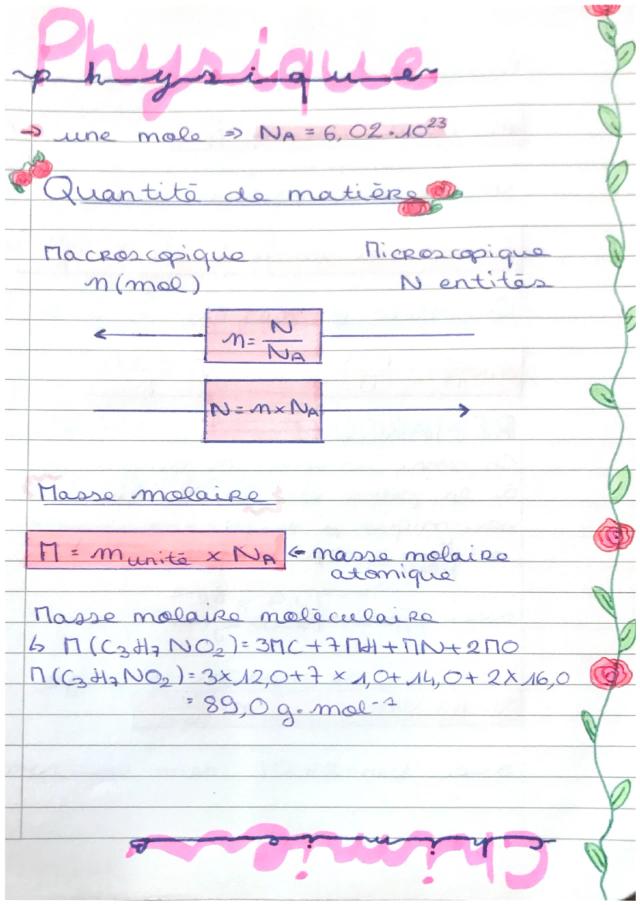 Physique
physique
→ une mole => NA = 6,02 · 10²³
Quantité de matière
Macroscopique
n (mol)
Microscopique
N entités
n = N / NA
N = n × NA
Masse molaire
M = m unité × NA ← masse molaire
atomique
Masse molaire moléculaire
↳ M(C₃H₇NO₂) = 3MC + 7MH + MN + 2MO
M(C₃H₇NO₂) = 3 × 12,0 + 7 × 1,0 + 14,0 + 2 × 16,0
= 89,0 g · mol⁻¹
chimie
Chimie